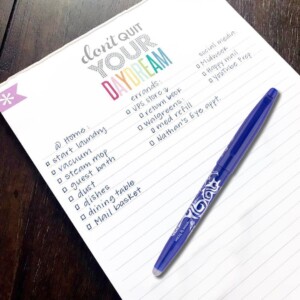 don't QUIT
YOUR
DAYDREAM
@ Home
start laundry
vacuum
steam mop
guest bath
dust
dishes
dining table
Mail basket
errands:
VPS store
return boot
Walgreens
med refill
Nathan's Eye appt.
social media
Happy mail
YouTube